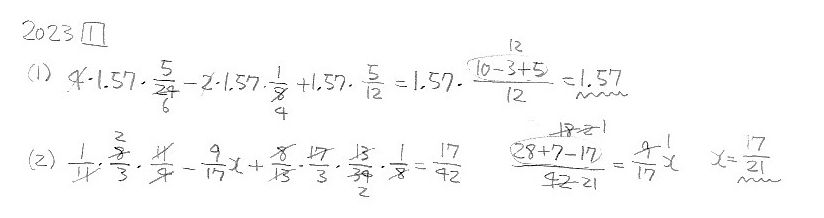 2023 1
(1) 4·1.57·5/24 6 − 2·1.57·1/8 4 + 1.57·5/12 = 1.57·(10−3+5)/12 12 = 1.57
(2) 1/11·8/3 2·11/4 − 9/17 x + 8/13·17/3·13/34 2·1/8 = 17/42 (28+7−17)/42 18 2 1 21 = 9/17 x 1 x = 17/21